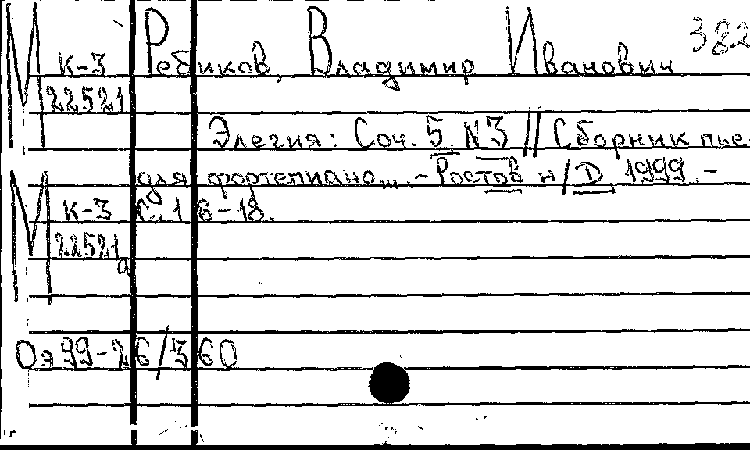 М К-3 Ребиков, Владимир Иванович 382
22521
Элегия: Соч. 5 №3 // Сборник пье-
для фортепиано... - Ростов н/Д, 1999. -
М К-3 С. 16-18.
22521а
Оэ 99-26/360